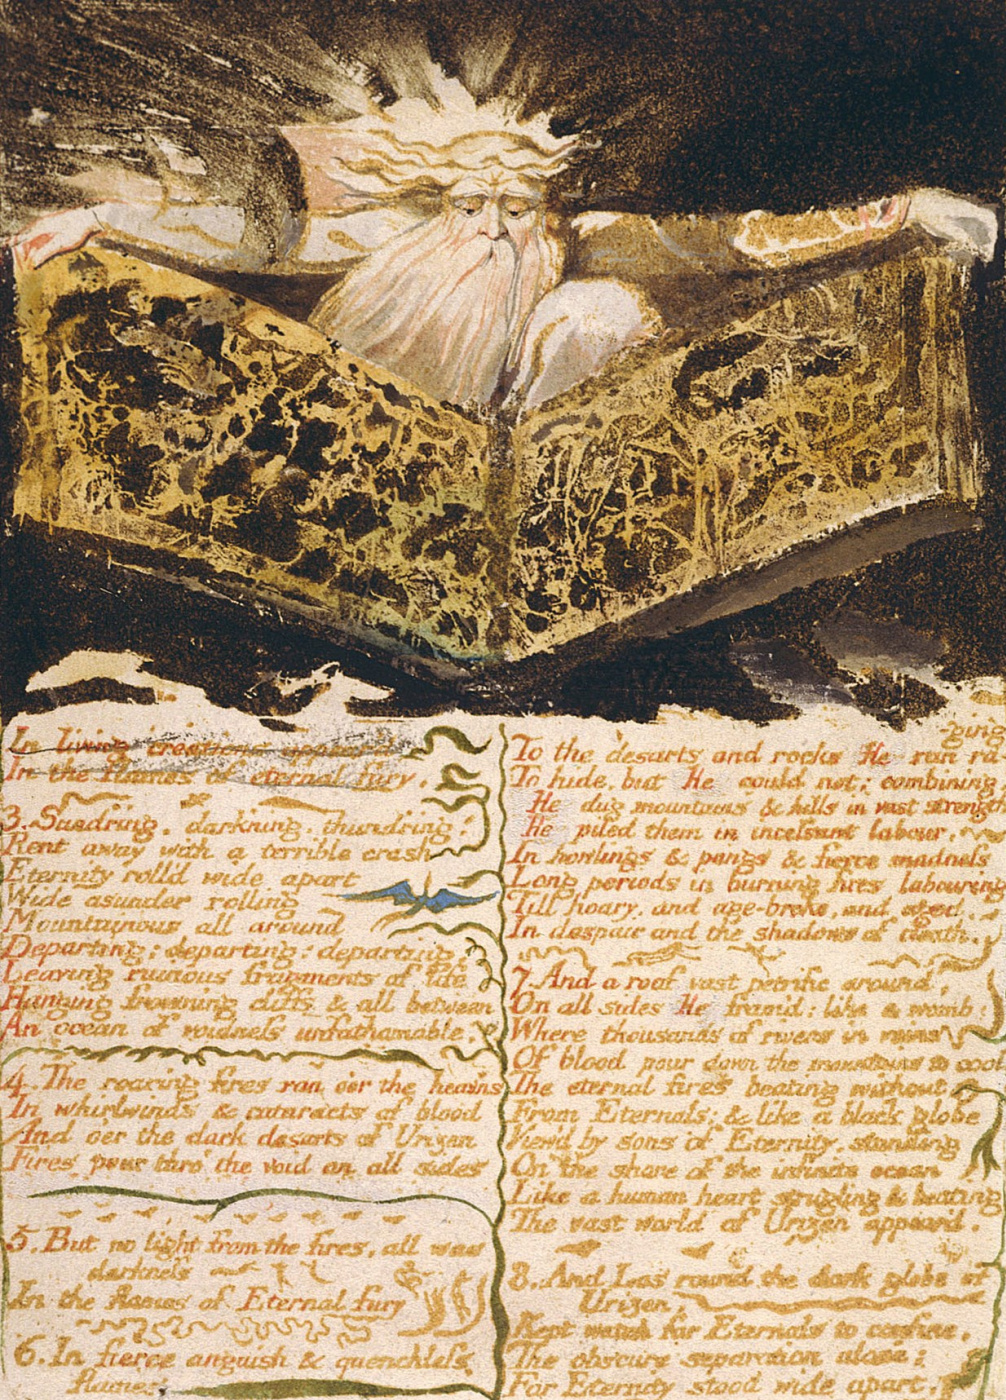 In living creations appear'd
In the flames of eternal fury.
3. Sund'ring, dark'ning, thund'ring!
Rent away with a terrible crash
Eternity roll'd wide apart
Wide asunder rolling
Mountainous all around
Departing; departing: departing:
Leaving ruinous fragments of life
Hanging frowning cliffs & all between
An ocean of voidness unfathomable.
4. The roaring fires ran o'er the heav'ns
In whirlwinds & cataracts of blood
And o'er the dark desarts of Urizen
Fires pour thro' the void on all sides
5. But no light from the fires, all was
darkness
In the flames of Eternal fury
6. In fierce anguish & quenchless
flames;
-ging
To the desarts and rocks He ran ra-
To hide, but He could not: combining
He dug mountains & hills in vast strength
He piled them in incessant labour,
In howlings & pangs & fierce madness
Long periods in burning fires labouring
Till hoary, and age-broke, and aged,
In despair and the shadows of death.
7. And a roof vast petrific around,
On all sides He fram'd: like a womb;
Where thousands of rivers in veins
Of blood pour down the mountains to cool
The eternal fires beating without
From Eternals; & like a black globe
View'd by sons of Eternity, standing
On the shore of the infinite ocean
Like a human heart strugling & beating
The vast world of Urizen appear'd.
8. And Los round the dark globe of
Urizen,
Kept watch for Eternals to confine,
The obscure separation alone;
For Eternity stood wide apart,